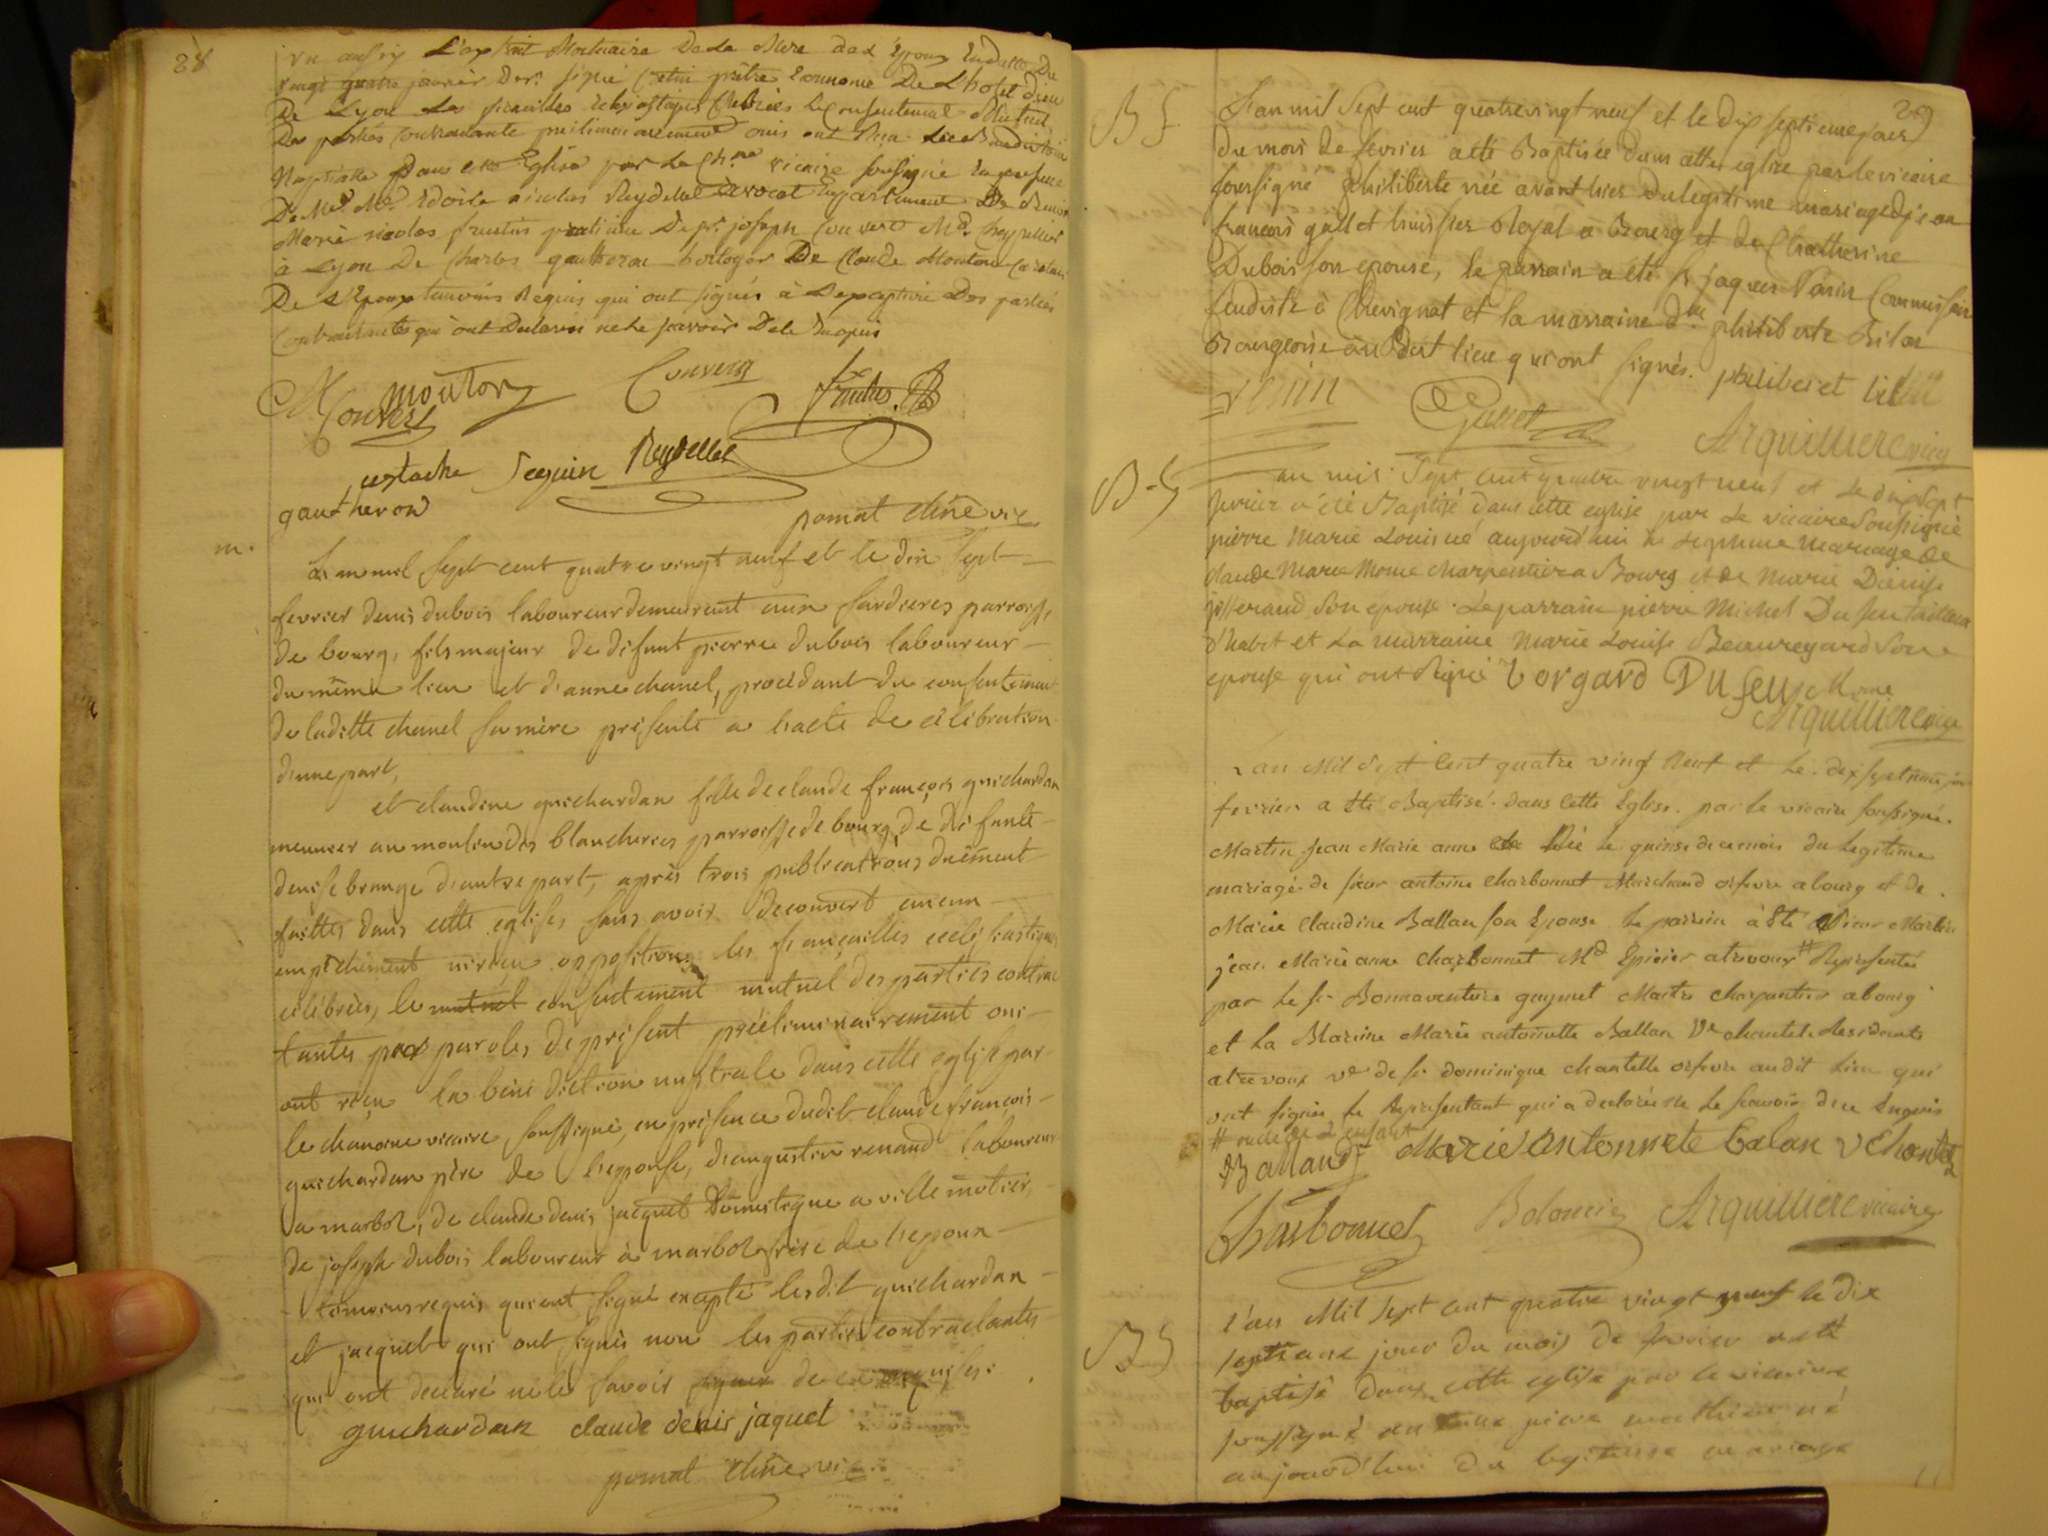 28
vu aussy L'extrait Mortuaire De la Mere de L'Epoux En datte Du
vingt quatre janvier Der. signé prêtre Econome De L'hotel dieu
De Lyon Les fiancailles celebrées Le Consentement Mutuel
Des parties Contractante preliminairement ouis ont Reçu La Benediction
Nuptialle Dans cette Eglise par Le Ch.ne vicaire soussigné En presence
De nicolas Reydellet avocat De
Marie nicolas praticien De sr. joseph Couvert Md. Chapellier
à Lyon De Charles gautheron horloger De Claude Mouton
De L'Epoux temoins Requis qui ont signés à L'exception Des parties
Contractantes qui ont Declarés ne le scavoir De ce Enquis
Mouton
Couvert
Couvert
eustache Seguin Reydellet
gautheron
pomat chne vic
m.
L'an mil sept cent quatre vingt neuf et le dix sept
fevrier denis dubois laboureur demeurant aux Sardieres parroisse
de bourg, fils majeur de defunt pierre dubois laboureur
du même lieu et d'anne chanel, procédant du consentement
de laditte chanel sa mère présente a l'acte de célébration
d'une part,
et claudine guichardan fille de claude françois guichardan
meunier au moulin des blancheries parroisse de bourg, de défunte
denise brange d'autre part, après trois publications duëment
faittes dans cette eglise, sans avoir découvert aucun
empêchement ni reçu opposition, les fiançailles ecclésiastiques
célébrées, le mutuel consentement mutuel des parties contrac
tantes par paroles de présent préeliminairement oui
ont reçu la béné diction nuptiale dans cette eglise par
le chanoine vicaire soussigné, en présence dudit claude françois
guichardan père de l'epouse, d'augustin renaud laboureur
a marboz, de claude denis jacquet domestique a villemotier,
de joseph dubois laboureur à marboz frère de l'epoux
témoins requis qui ont signé excepté lesdit guichardan
et jacquet qui ont signés non les parties contractantes
qui ont déclaré ne le savoir signer de ce requises.
guichardan claude denis jaquet
pomat chne vic
29
L'an mil sept cent quatre vingt neuf et le dix septieme jour
du mois de fevrier a eté Baptisée dans cette eglise par le vicaire
soussigné philiberte née avant hier du legitime mariage de jean
françois gallet huissier Royal à Bourg et de Chatherine
Dubois son epouse, le parrain a eté sr jaques Vénin Commissaire
feudiste à Chevignat et la marraine dlle philiberte
Bourgeoise au Dit lieu qui ont signés. philiberet
Venin
Gallet
Arquilliere vicg
L'an mil sept cent quatre vingt neuf et le dix sept
fevrier a été Baptisé dans cette eglise par le vicaire soussigné
pierre Marie Louis né aujourd'hui du legitime mariage de
claude Marie Mome charpentier a Bourg et de Marie Denise
jifferand Son epouse. Le parrain pierre Michel Dufeu tailleur
d'habit et La marraine Marie Louise Beauregard Son
epouse qui ont signé Borgard Dufeu Mome
Arquilliere vicg
L'an Mil Sept Cent quatre vingt Neuf et le dix septieme jour
fevrier a Eté Baptisé dans Cette Eglise par le vicaire soussigné
Martin Jean Marie anne Né le quinze de ce mois du Legitime
mariage de sieur antoine Charbonnet Marchand orfevre a bourg et de
Marie Claudine Ballan son Epouse le parrein à Eté Sieur Martin
jean Marie anne Charbonnet Md Epicier a trevoux # Representé
par le sr Bonnaventure guynet Maitre charpentier a bourg
et La Mareine Marie antoinette Ballan Ve chantel Residente
a trevoux ve de sr dominique chantelle orfevre audit Lieu qui
ont signés le Representant qui a declaré ne le scavoir de ce Enquis
# oncle de l'enfant
Balland Marie antoinnete balan v Chantel
Charbonnet Arquilliere vicaire
l'an Mil sept cent quatre vingt neuf le dix
septieme jour du mois de fevrier a eté
baptisé dans cette eglise par le vicaire
soussigné pierre mathieu né
aujourd'hui du legitime mariage